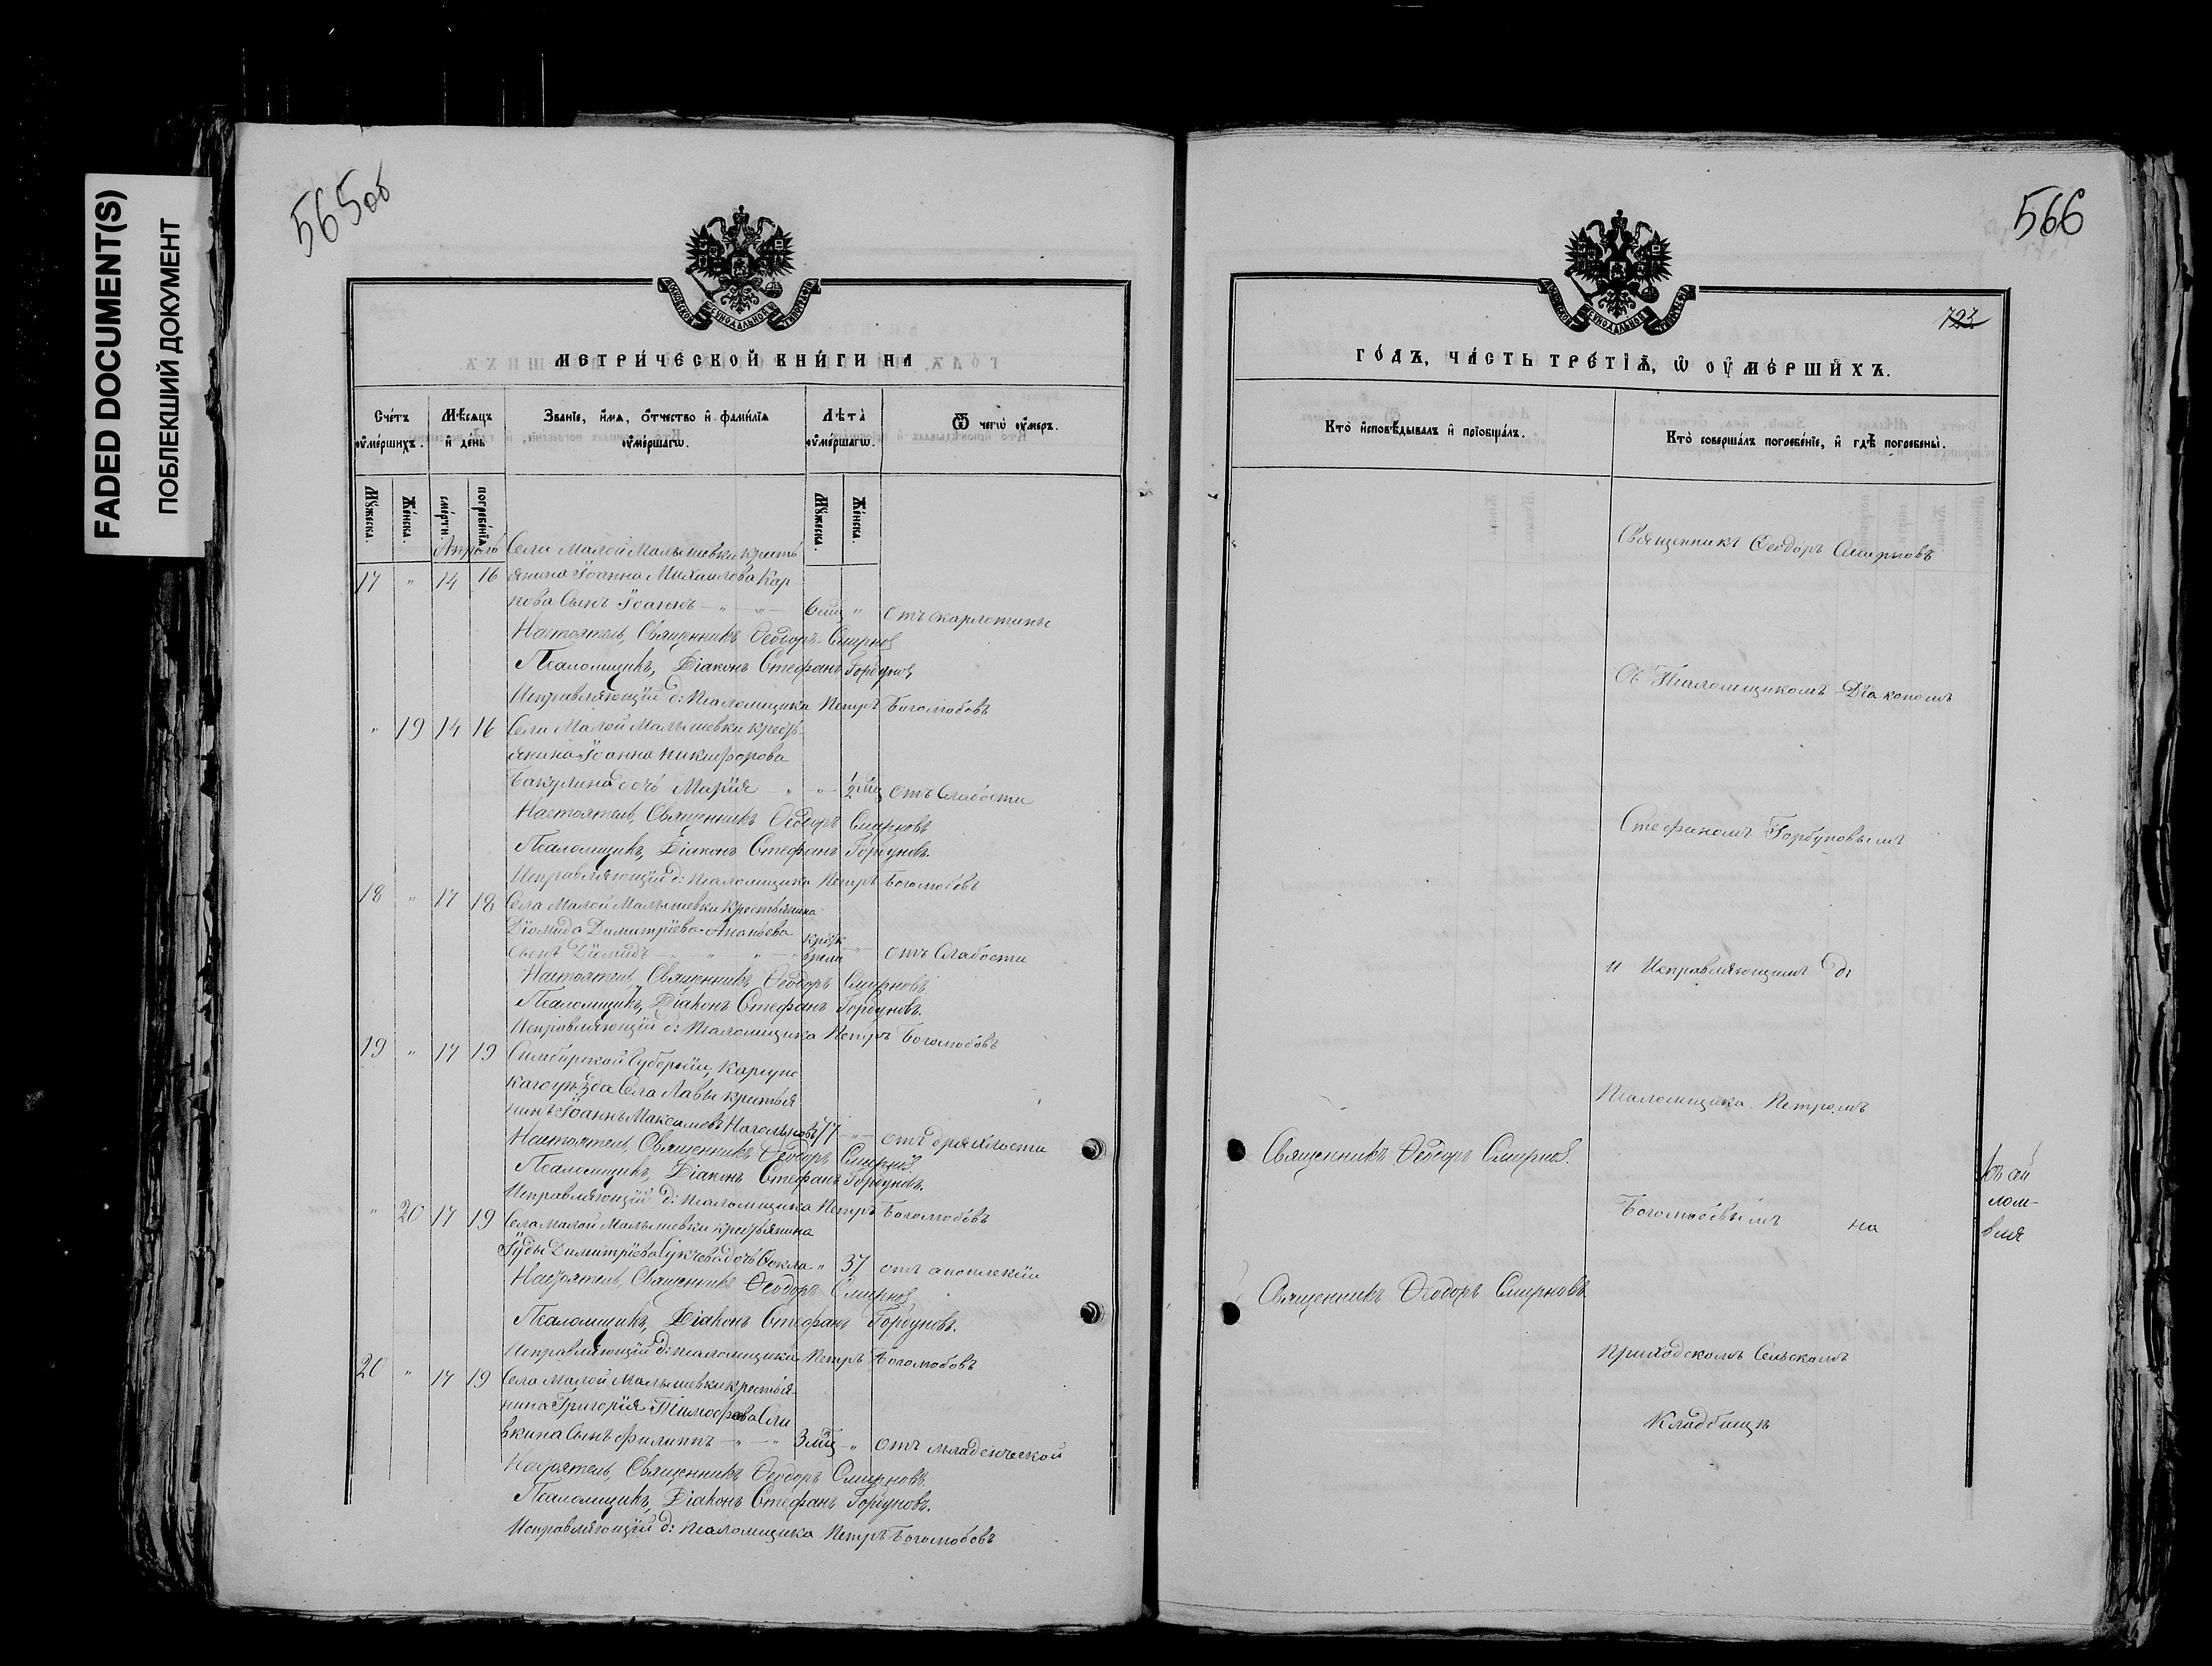 FADED DOCUMENT(S)
ПОБЛЕКШИЙ ДОКУМЕНТ
565об
МЕТРИ́ЧЕСКОЙ КНИ́ГИ НА
Сче́тъ оу҆ме́ршихъ.
Мѣ́сяцъ и҆ де́нь
Зва́нїе, и҆́мя, ѻ҆́тчество и҆ фами́лїя оу҆ме́ршагѡ.
Лѣ́та оу҆ме́ршагѡ.
Ѿ чегѡ̀ оу҆́меръ.
Мꙋ́жеска.
Же́нска.
сме́рти.
погребе́нїя
Мꙋ́жеска.
Же́нска.
Апрель Села Малой Малышевки кресть
17 " 14 16 янина Іоанна Михаилова Кар
пова Сынъ Іоаннъ - " - " - 6 мц " отъ скарлотины
Настоятель, Священникъ Ѳеодоръ Смирнов
Псаломщикъ, Діаконъ Стефанъ Горбунов
Исправляющій д: псаломщика Петръ Боголюбовъ
" 19 14 16 Села Малой Малышевки кресть
янина Іоанна Никифорова
Бакулина дочь Марія - " - " - 2 мц отъ слабости
Настоятель, Священникъ Ѳеодоръ Смирновъ
Псаломщикъ, Діаконъ Стефанъ Горбуновъ.
Исправляющій д: псаломщика Петръ Боголюбовъ
18 " 17 18 Села Малой Малышевки крестьянина
Діомида Димитріева Ананьева
сынъ Діомидъ - " - " - " - " - " - отъ слабости
Настоятель, Священникъ Ѳеодоръ Смирновъ.
Псаломщикъ, Діаконъ Стефанъ Горбуновъ.
Исправляющій д: псаломщика Петръ Боголюбовъ
19 " 17 19 Симбирской Губерніи, Карсунс
каго уѣзда Села Лавы крестья
нинъ Іоаннъ Максимовъ 77 - " - отъ дряхлости
Настоятель, Священникъ Ѳеодоръ Смирнов.
Псаломщикъ, Діаконъ Стефанъ Горбуновъ.
Исправляющій д: псаломщика Петръ Боголюбовъ
" 20 17 19 Села Малой Малышевки крестьянина
Іуды Димитріева дочь Ѳекла " 37 отъ апоплексіи
Настоятель, Священникъ Ѳеодоръ Смирнов
Псаломщикъ, Діаконъ Стефанъ Горбуновъ.
Исправляющій д: псаломщика Петръ Боголюбовъ
20 " 17 19 Села Малой Малышевки крестья
нина Григорія Тимофеева Сли
вкина Сынъ Филиппъ - " - " 3 мц - " отъ младенческой
Настоятель, Священникъ Ѳеодоръ Смирновъ.
Псаломщикъ, Діаконъ Стефанъ Горбуновъ.
Исправляющій д: псаломщика Петръ Боголюбовъ
566
723
ГО́ДЪ, ЧА́СТЬ ТРЕ́ТІѦ, Ѡ҆ ОУ҆МЕ́РШИХЪ.
Кто̀ и҆сповѣ́дывалъ и҆ прїѡбща́лъ.
Кто̀ соверша́лъ погребе́нїе, и҆ гдѣ̀ погребены̀.
Священникъ Ѳеодоръ Смирновъ
Съ Псаломщикомъ Діакономъ
Стефаномъ Горбуновымъ
и Исправляющимъ д:
Псаломщика Петромъ
Священникъ Ѳеодоръ Смирнов.
Боголюбовымъ на
Священникъ Ѳеодоръ Смирновъ
приходскомъ Сельскомъ
Кладбищѣ